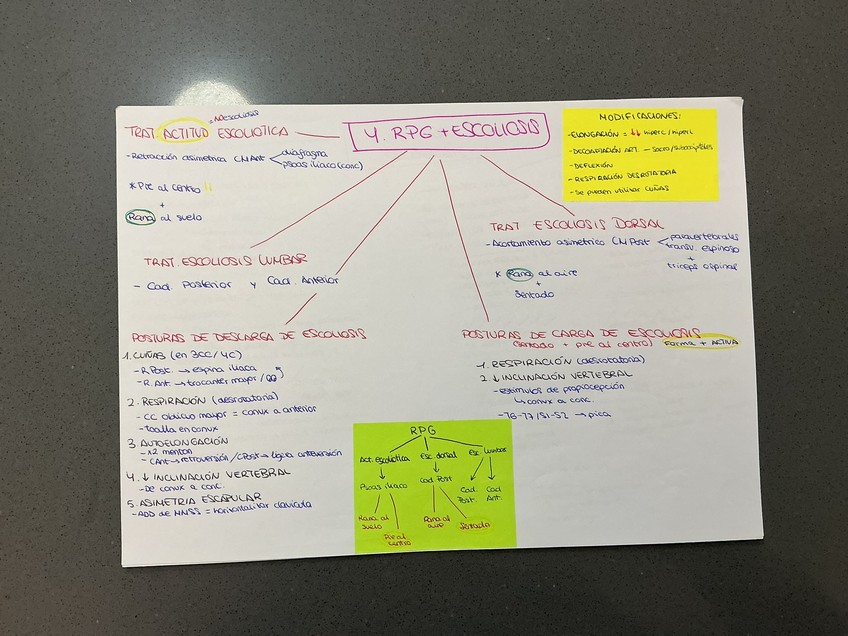 4. RPG + ESCOLIOSIS
TRAT. ACTITUD ESCOLIOTICA
= NO ESCOLIOSIS
- Retracción asimetrica CM Ant
diafragma
psoas iliaco (conc)
* Pie al centro !!
+
Rana al suelo
MODIFICACIONES:
- ELONGACIÓN = ↓↓ hiperc/hiperl
- DECOAPTACIÓN ART. → Sacro/suboccipitales
- DEFLEXIÓN
- RESPIRACIÓN DESROTATORIA
- Se pueden utilizar CUÑAS
TRAT ESCOLIOSIS DORSAL
- Acortamiento asimetrico CM Post
paravertebrales
transv. espinoso
+
triceps espinal
* Rana al aire
+
Sentado
TRAT. ESCOLIOSIS LUMBAR
- Cad. Posterior y Cad. Anterior
POSTURAS DE DESCARGA DE ESCOLIOSIS
1. CUÑAS (en 3CC/4C)
- R.Post. → espina iliaca
- R.Ant → trocanter mayor/
2. RESPIRACIÓN (desrotatoria)
- CC oblicuo mayor = convx a anterior
- Toalla en convx
3. AUTOELONGACIÓN
- x2 menton
- CAnt → retroversión / CPost → ligera anteversión
4. ↓ INCLINACIÓN VERTEBRAL
- De convx a conc.
5. ASIMETRIA ESCAPULAR
- ADD de MMSS = horizontalizar clavicula
POSTURAS DE CARGA DE ESCOLIOSIS
(sentado + pie al centro) Forma + ACTIVA
1. RESPIRACIÓN (desrotatoria)
2. ↓ INCLINACIÓN VERTEBRAL
- estimulos de propiocepción
↳ convx a conc.
- T6-T7/S1-S2 → pica
RPG
Act. escoliotica Esc. dorsal Esc. lumbar
Psoas iliaco Cad. Post Cad. Post. Cad. Ant.
Rana al suelo
Pie al centro
Rana al aire
Sentado